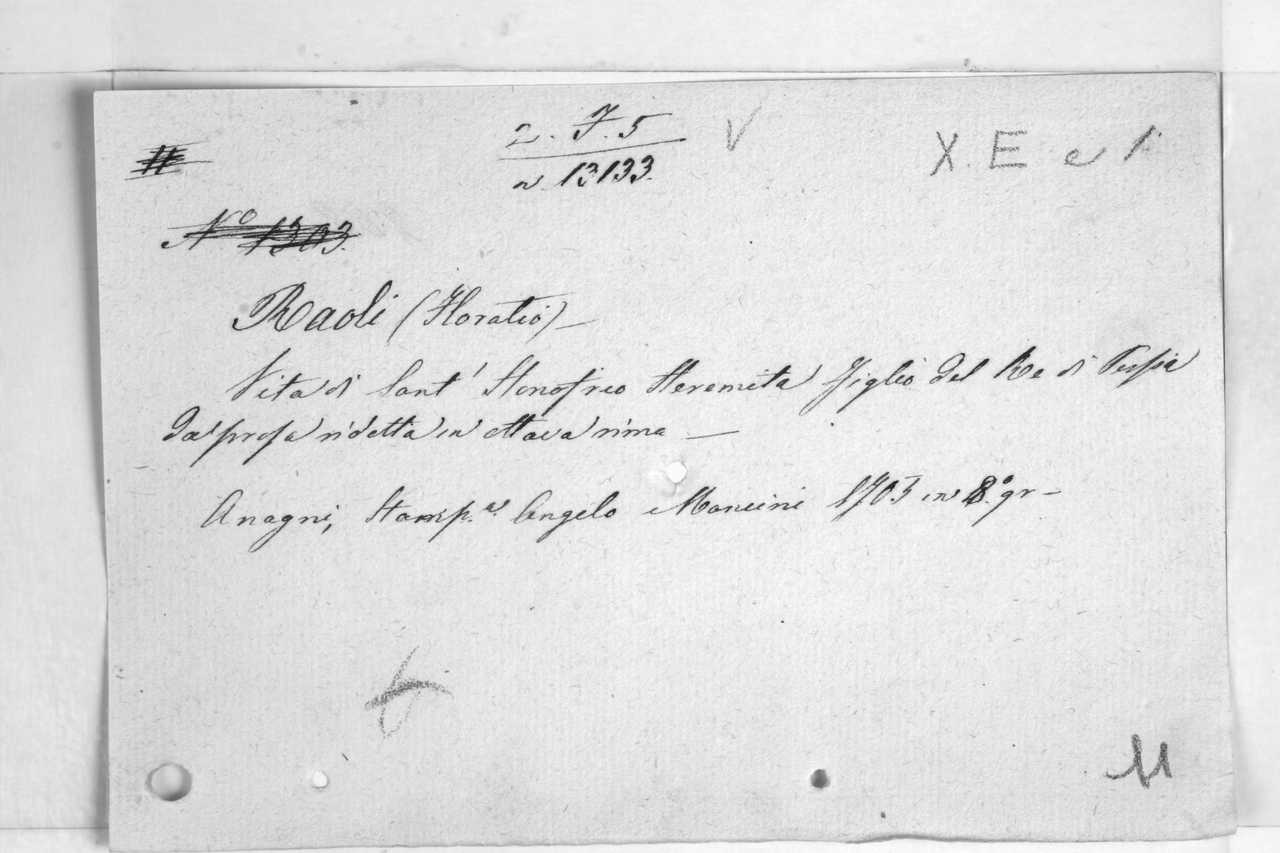 2. F. 5 V
X. E e 1.
n. 13133.
N.º 1303.
Raoli (Horatio) —
Vita di Sant' Honofrio Heremita Figlio del Re di Persia
da prosa ridotta in ottava rima —
Anagni, Stamp.ª Angelo Mancini 1703 in 8.º gr —
M